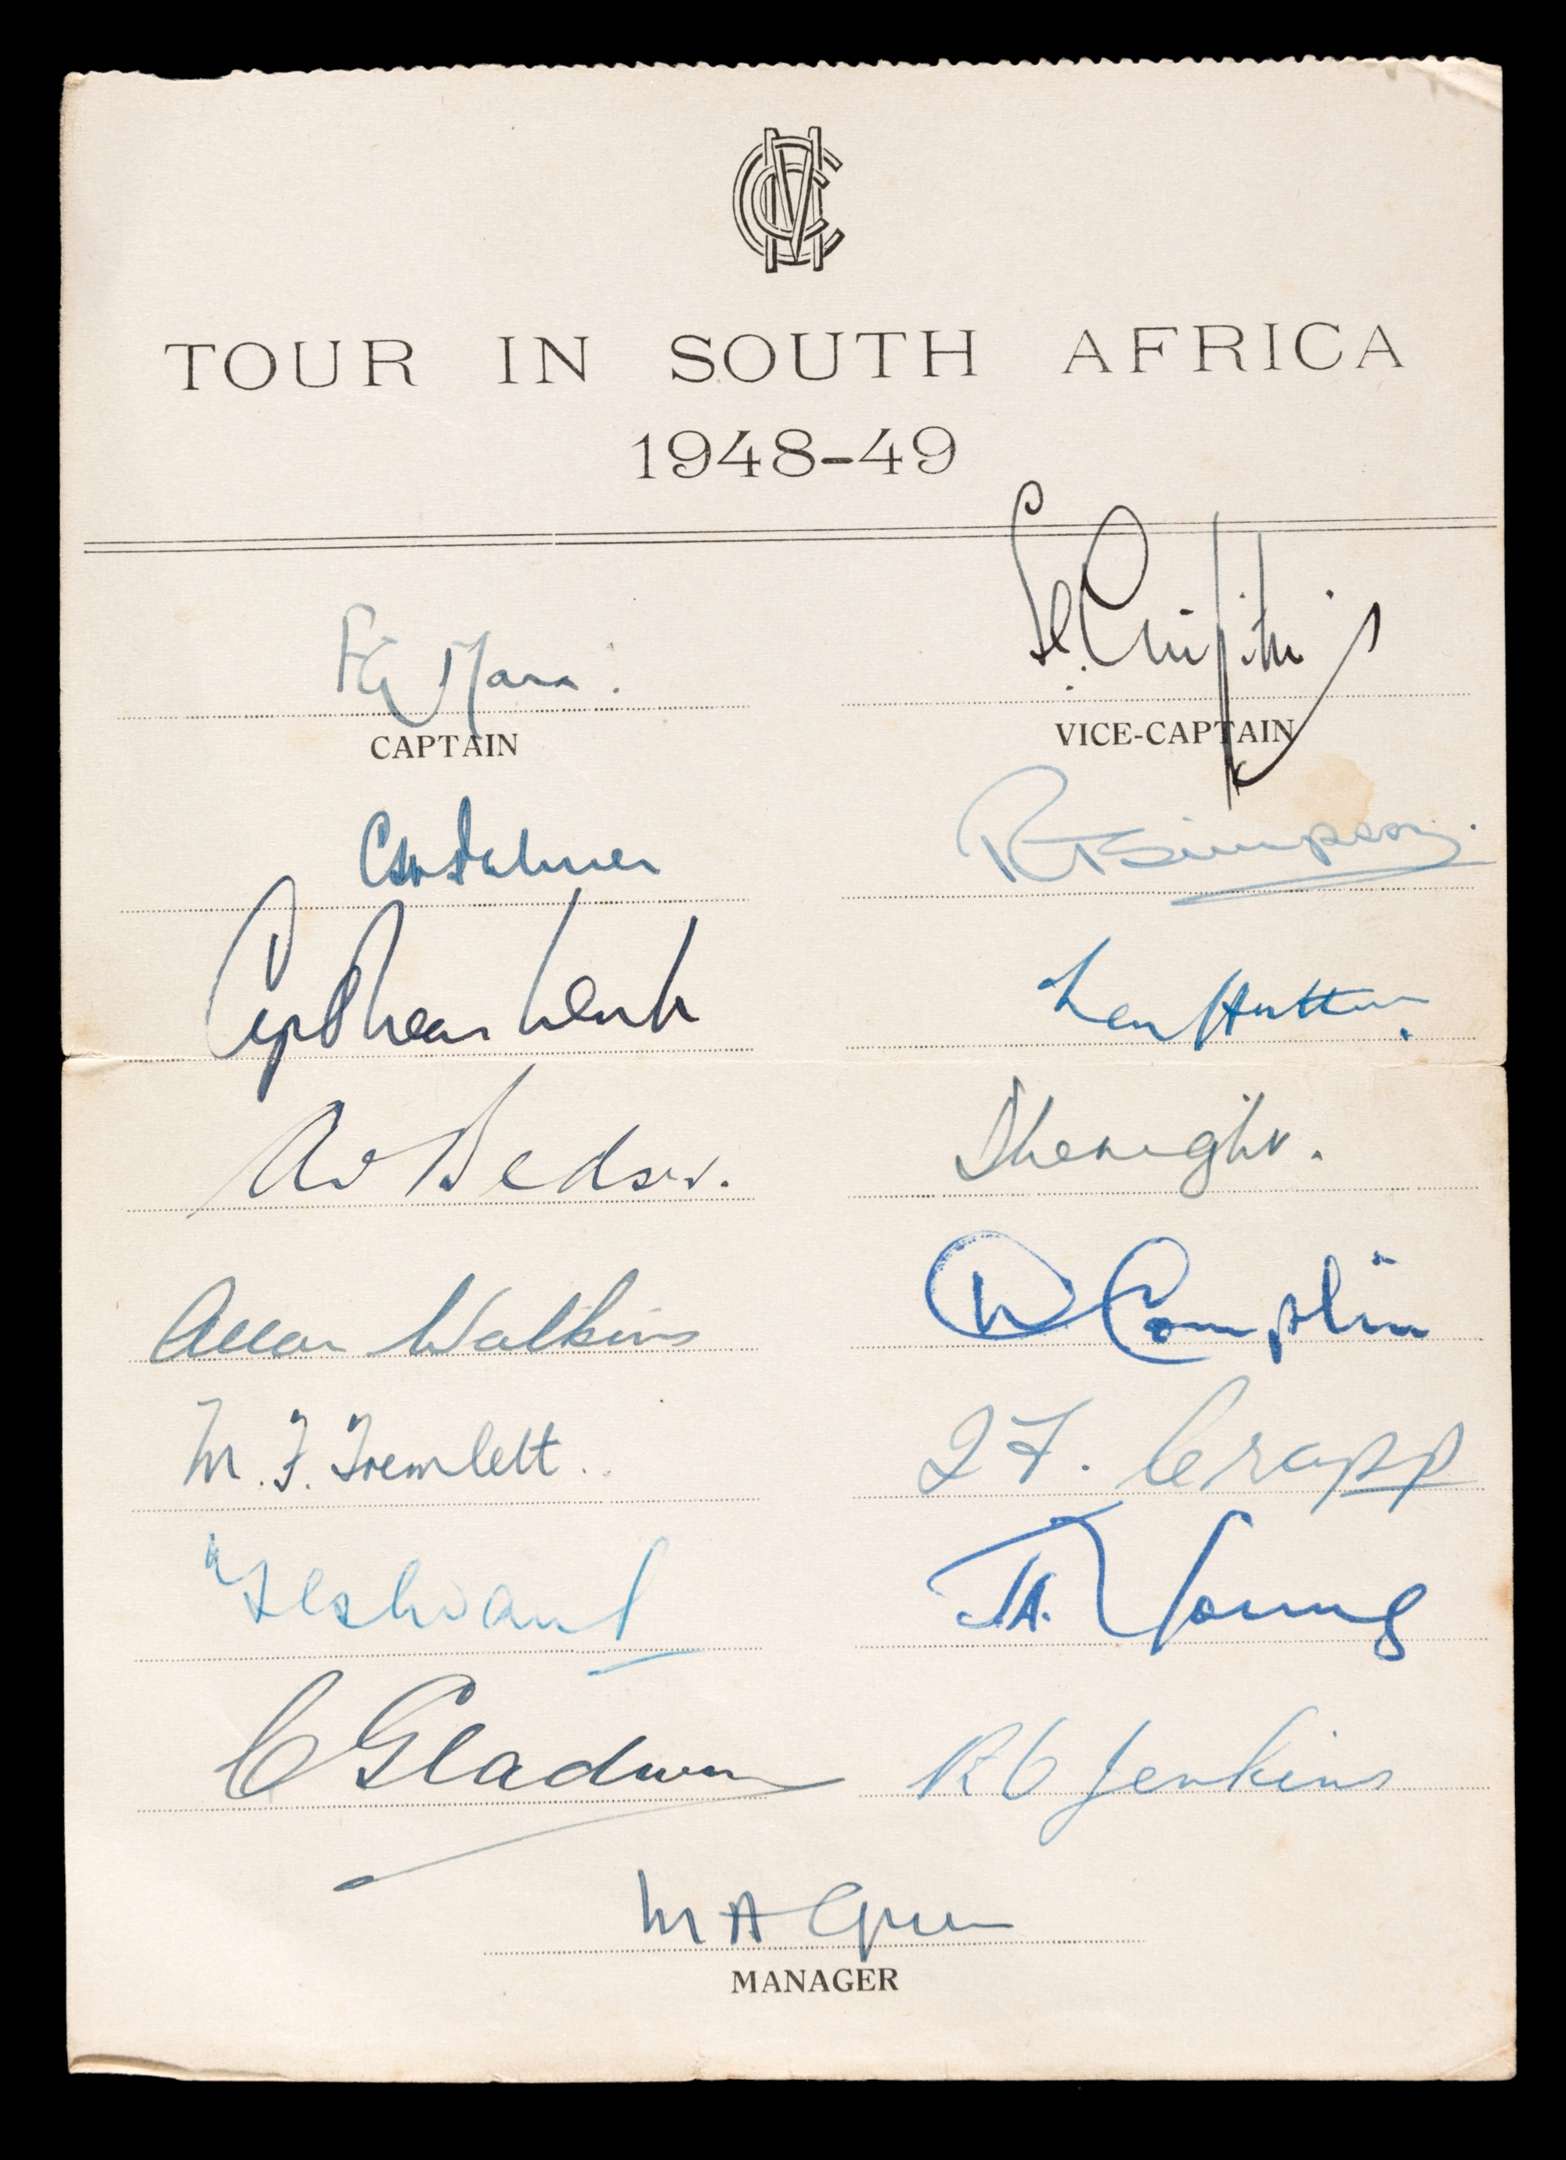 MCC
TOUR IN SOUTH AFRICA
1948-49
FG Mann. S.C. Griffith
CAPTAIN VICE-CAPTAIN
CH Palmer RT Simpson.
Cyril Washbrook Len Hutton.
AV Bedser. D.V.P. Wright.
Allan Watkins Denis Compton
M. F. Tremlett. J F. Crapp
JA. Young
C Gladwin R O Jenkins
M A Green
MANAGER